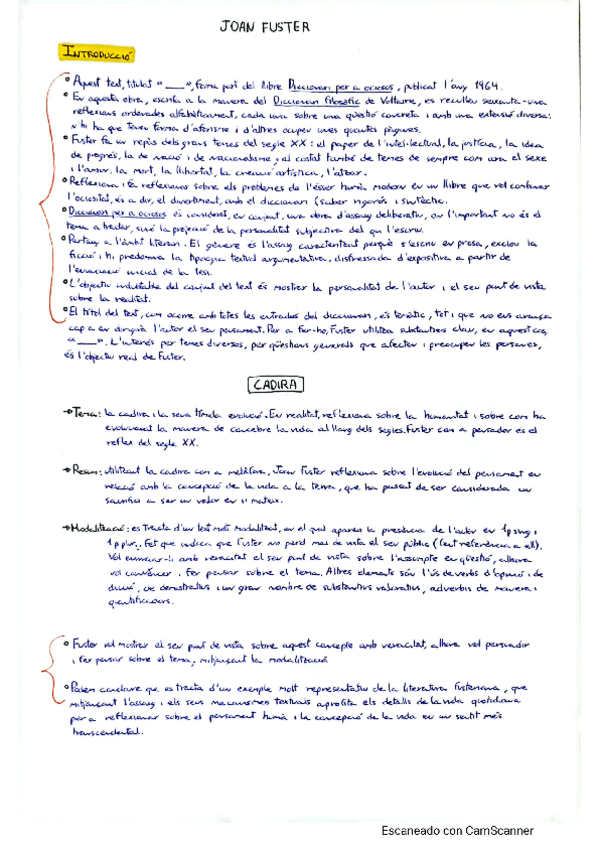 JOAN FUSTER
INTRODUCCIÓ
Aquest text, titulat "___", forma part del llibre Diccionari per a ociosos, publicat l'any 1964.
En aquesta obra, escrita a la manera del Diccionari Filosòfic de Voltaire, es recullen seixanta-una
reflexions ordenades alfabèticament, cada una sobre una qüestió concreta i amb una extensió diversa:
n'hi ha que tenen forma d'aforisme i d'altres ocupen unes quantes pàgines.
Fuster fa un repàs dels grans temes del segle XX: el paper de l'intel·lectual, la justícia, la idea
de progrés, la de nació i de nacionalisme; al costat també de temes de sempre com ara el sexe
i l'amor, la mort, la llibertat, la creació artística, l'atzar.
Reflexiona i fa reflexionar sobre els problemes de l'ésser humà modern en un llibre que vol conjunar
l'ociositat, és a dir, el divertiment, amb el diccionari (saber rigorós i sintètic.
Diccionari per a ociosos és considerat, en conjunt, una obra d'assaig deliberatiu, on l'important no és el
tema a tractar, sinó la projecció de la personalitat subjectiva del qui l'escriu.
Pertany a l'àmbit literari. El gènere és l'assaig caracteritzat perquè s'escriu en prosa, exclou la
ficció i hi predomina la tipologia textual argumentativa, disfressada d'expositiva a partir de
l'enunciació inicial de la tesi.
L'objectiu indubtable del conjunt del text és mostrar la personalitat de l'autor i el seu punt de vista
sobre la realitat.
El títol del text, com ocorre amb totes les entrades del diccionari, és temàtic, tot i que no ens avança
cap a on dirigirà l'autor el seu pensament. Per a fer-ho, Fuster utilitza substantius clau, en aquest cas,
"___". L'interés per temes diversos, per qüestions generals que afecten i preocupen les persones,
és l'objectiu real de Fuster.
CADIRA
Tema: la cadira i la seva tímida evolució. En realitat, reflexiona sobre la humanitat i sobre com ha
evolucionat la manera de concebre la vida al llarg dels segles. Fuster com a pensador és el
reflex del segle XX.
Resum: utilitzant la cadira com a metàfora, Joan Fuster reflexiona sobre l'evolució del pensament en
relació amb la concepció de la vida a la terra, que ha passat de ser considerada un
sacrifici a ser un valor en si mateix.
Modalització: es tracta d'un text molt modalitzat, en el qual apareix la presència de l'autor en 1p sing i
1p plur, fet que indica que Fuster no perd mai de vista el seu públic (fent referència a ell).
Vol comunicar-li amb veracitat el seu punt de vista sobre l'assumpte en qüestió, alhora
vol convèncer i fer pensar sobre el tema. Altres elements són l'ús de verbs d'opinió i de
dicció, de demostratius i un gran nombre de substantius valoratius, adverbis de manera i
quantificadors.
Fuster vol mostrar el seu punt de vista sobre aquest concepte amb veracitat, alhora vol persuadir
i fer pensar sobre el tema, mitjançant la modalització
Podem concloure que es tracta d'un exemple molt representatiu de la literatura fusteriana, que
mitjançant l'assaig i els seus mecanismes textuals aprofita els detalls de la vida quotidiana
per a reflexionar sobre el pensament humà i la concepció de la vida en un sentit més
transcendental.
Escaneado con CamScanner